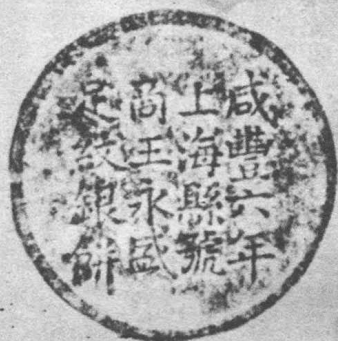 咸豐六年
上海縣號
商王永盛
足紋銀餅